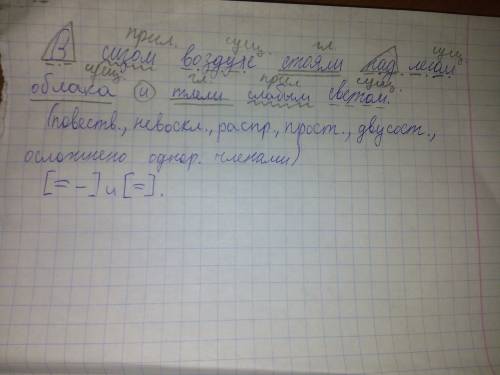 прил. сущ. гл. сущ.
В сизом воздухе стояли над лесом
сущ. гл. прил. сущ.
облака и тлели слабым светом.
(повеств., невоскл., распр., прост., двусост.,
осложнено однор. членами)
[= -] и [=].